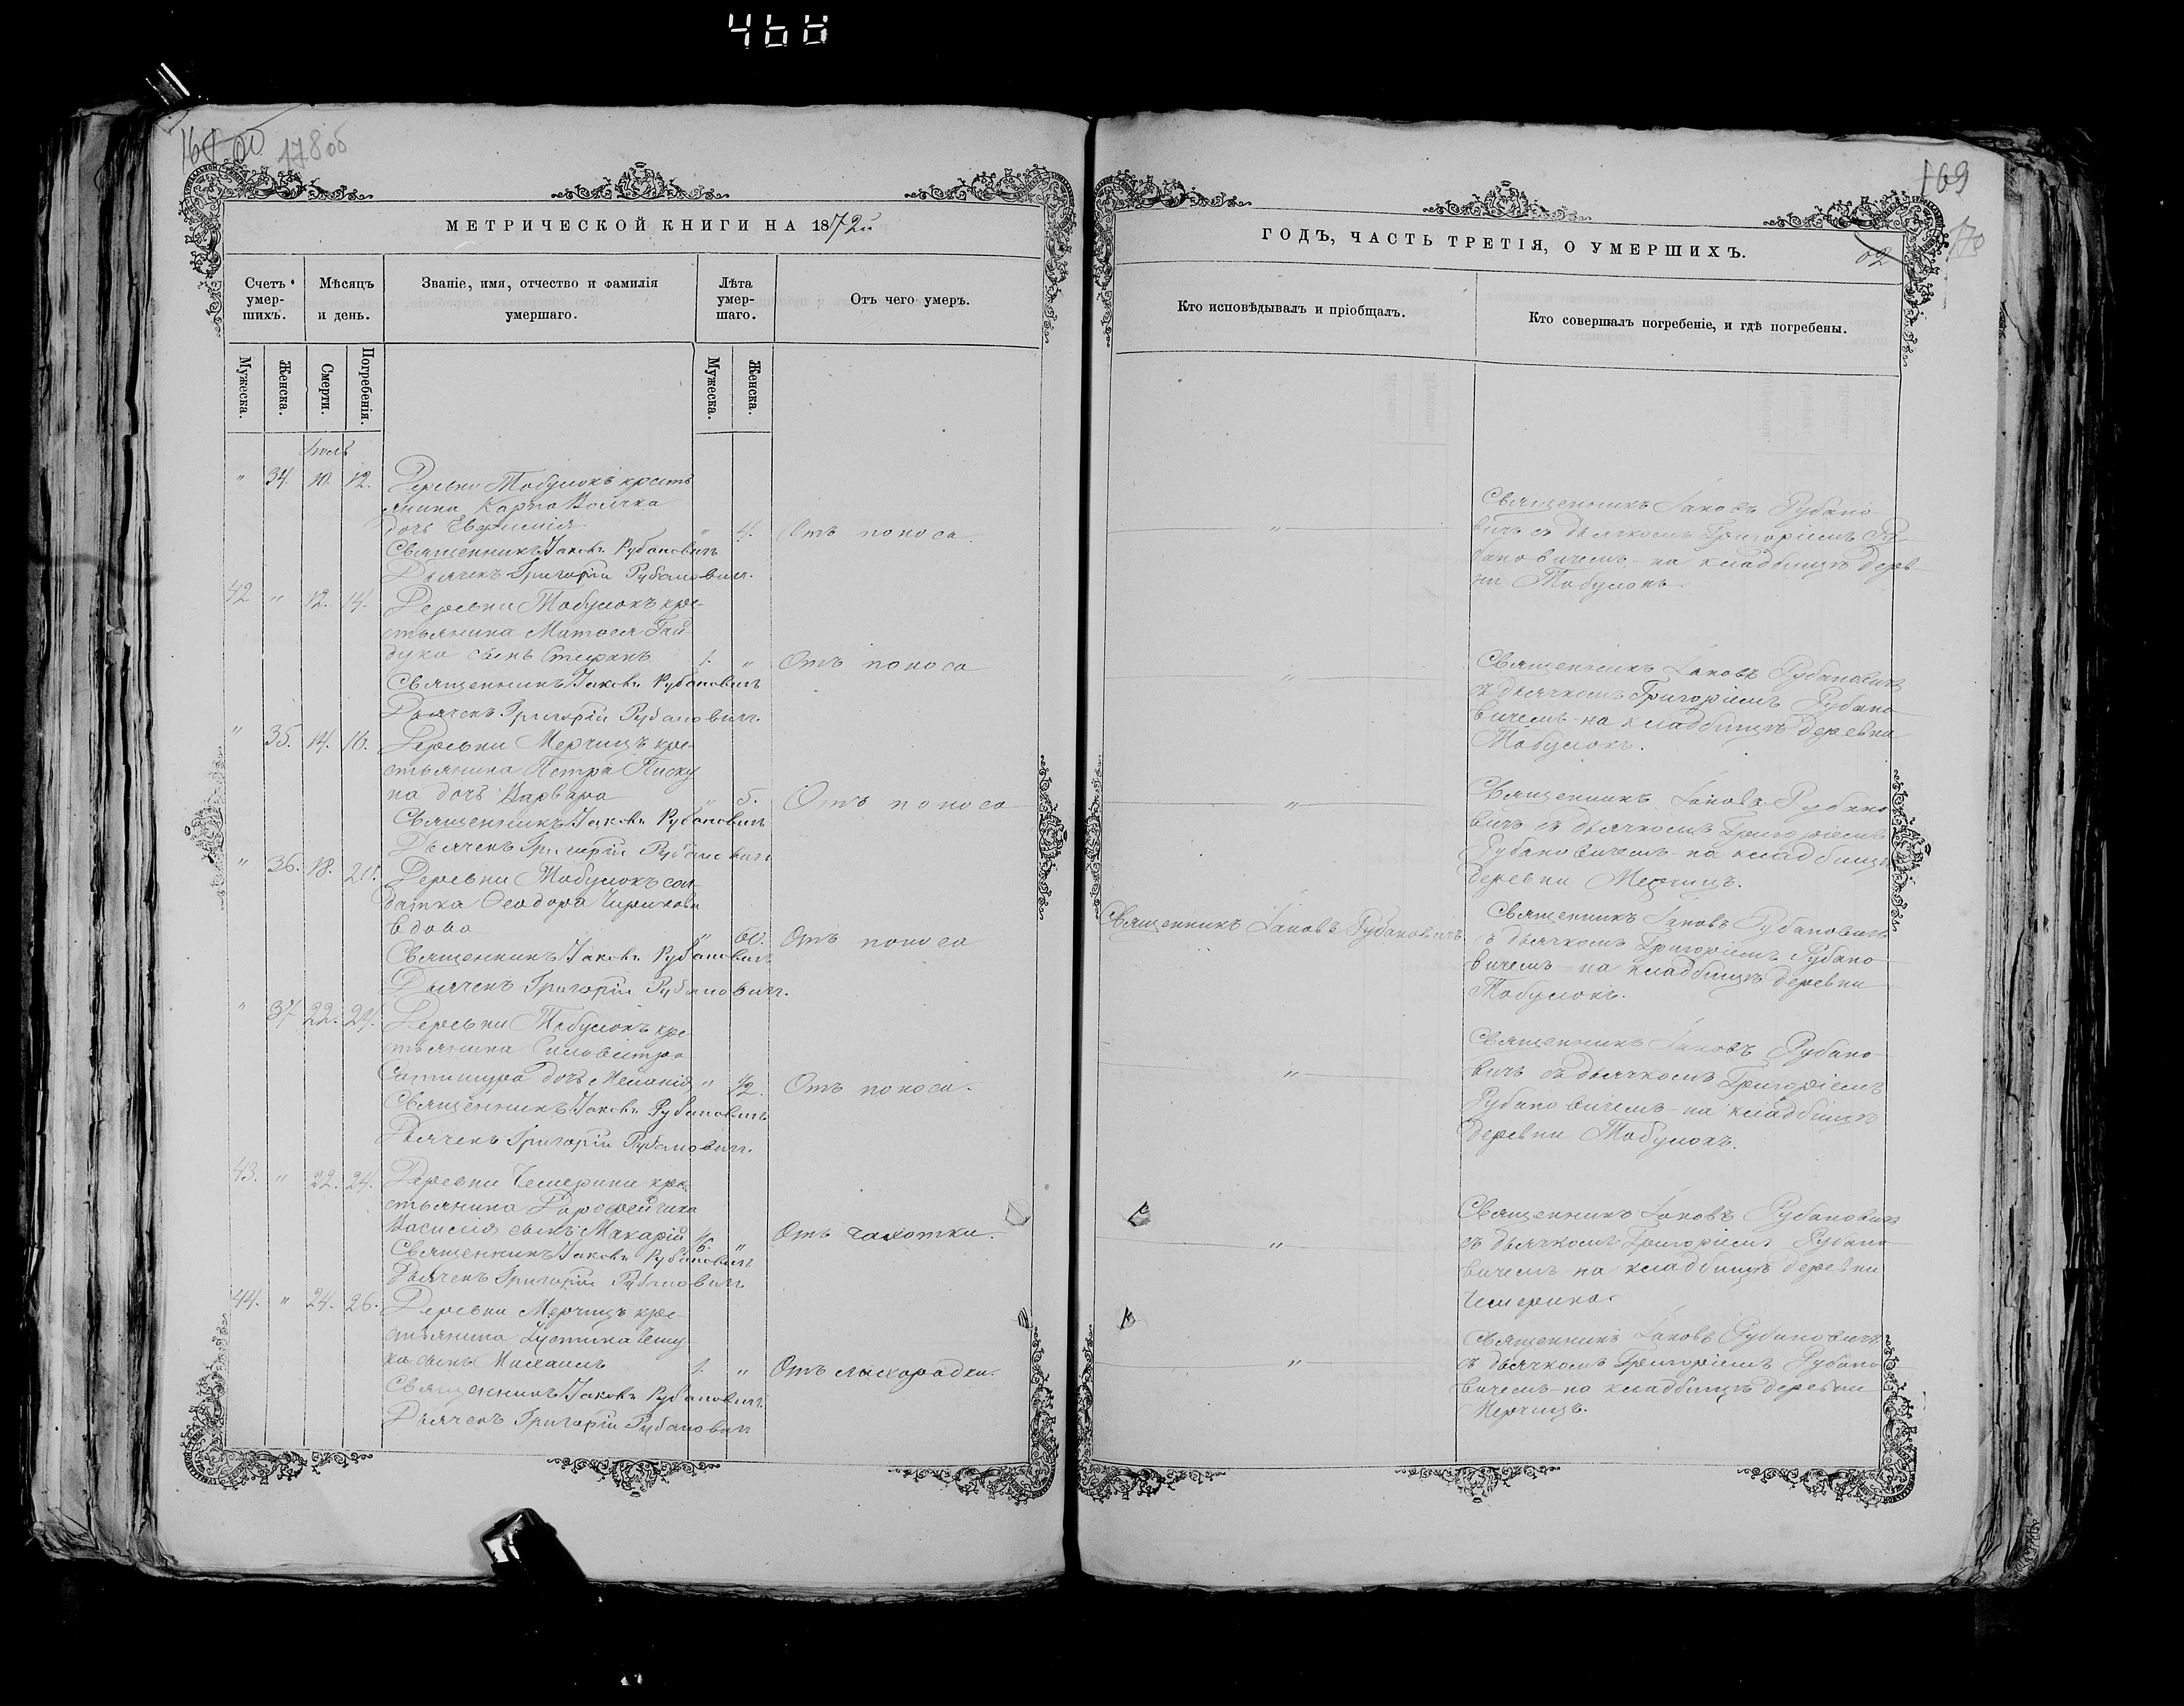 468
178 об
МЕТРИЧЕСКОЙ КНИГИ НА 1872й
Счетъ умер-шихъ.
Мѣсяцъ и день.
Званіе, имя, отчество и фамилія умершаго.
Лѣта умер-шаго.
Отъ чего умеръ.
Мужеска.
Женска.
Смерти.
Погребенія.
Мужеска.
Женска.
Іюль
" 34. 10. 12. Деревни Тобулокъ кресть
янина Карпа
дочь Евфимія " 4. Отъ поноса.
Священникъ Іаковъ Рубановичъ
Дьячекъ Григорій Рубановичъ.
42 " 12. 14. Деревни Тобулокъ кре-
стьянина Матвея Гай
дука сынъ Стефанъ 1. " Отъ поноса
Священникъ Іаковъ Рубановичъ
Дьячекъ Григорій Рубановичъ.
" 35. 14. 16. Деревни Мерчицъ кре-
стьянина Петра Писку
на дочь Варвара " 5. Отъ поноса
Священникъ Іаковъ Рубановичъ
Дьячекъ Григорій Рубановичъ
" 36. 18. 20. Деревни Тобулокъ сол-
датка Феодора
вдова " 60. Отъ поноса
Священникъ Іаковъ Рубановичъ
Дьячекъ Григорій Рубановичъ.
" 37 22. 24. Деревни Тобулокъ кре
стьянина Сильвестра
дочь Меланія " 1/2. Отъ поноса.
Священникъ Іаковъ Рубановичъ
Дьячекъ Григорій Рубановичъ.
43. " 22. 24. Деревни Чемерина кре-
стьянина Дорофейчика
Василія сынъ Макарій " Отъ чахотки.
Священникъ Іаковъ Рубановичъ
Дьячекъ Григорій Рубановичъ
44. " 24. 26. Деревни Мерчицъ кре-
стьянина Іустина Чешу
ка сынъ Михаилъ 1. " Отъ лихорадки.
Священникъ Іаковъ Рубановичъ
Дьячекъ Григорій Рубановичъ
169
170
62
ГОДЪ, ЧАСТЬ ТРЕТІЯ, О УМЕРШИХЪ.
Кто исповѣдывалъ и пріобщалъ.
Кто совершалъ погребеніе, и гдѣ погребены.
Священникъ Іаковъ Рубано-
" вичъ съ дьячкомъ Григоріемъ Ру-
бановичемъ на кладбищѣ дерев
ни Тобулокъ.
Священникъ Іаковъ Рубановичъ
" съ дьячкомъ Григоріемъ Рубано
вичемъ на кладбищѣ деревни
Тобулокъ.
Священникъ Іаковъ Рубано
" вичъ съ дьячкомъ Григоріемъ
Рубановичемъ на кладбищѣ
деревни Мерчицъ.
Священникъ Іаковъ Рубановичъ
Священникъ Іаковъ Рубановичъ
съ дьячкомъ Григоріемъ Рубано
вичемъ на кладбищѣ деревни
Тобулокъ.
Священникъ Іаковъ Рубано
" вичъ съ дьячкомъ Григоріемъ
Рубановичемъ на кладбищѣ
деревни Тобулокъ.
Священникъ Іаковъ Рубановичъ
" съ дьячкомъ Григоріемъ Рубано
вичемъ на кладбищѣ деревни
Чемерина.
Священникъ Іаковъ Рубановичъ
" съ дьячкомъ Григоріемъ Рубано
вичемъ на кладбищѣ деревни
Мерчицъ.